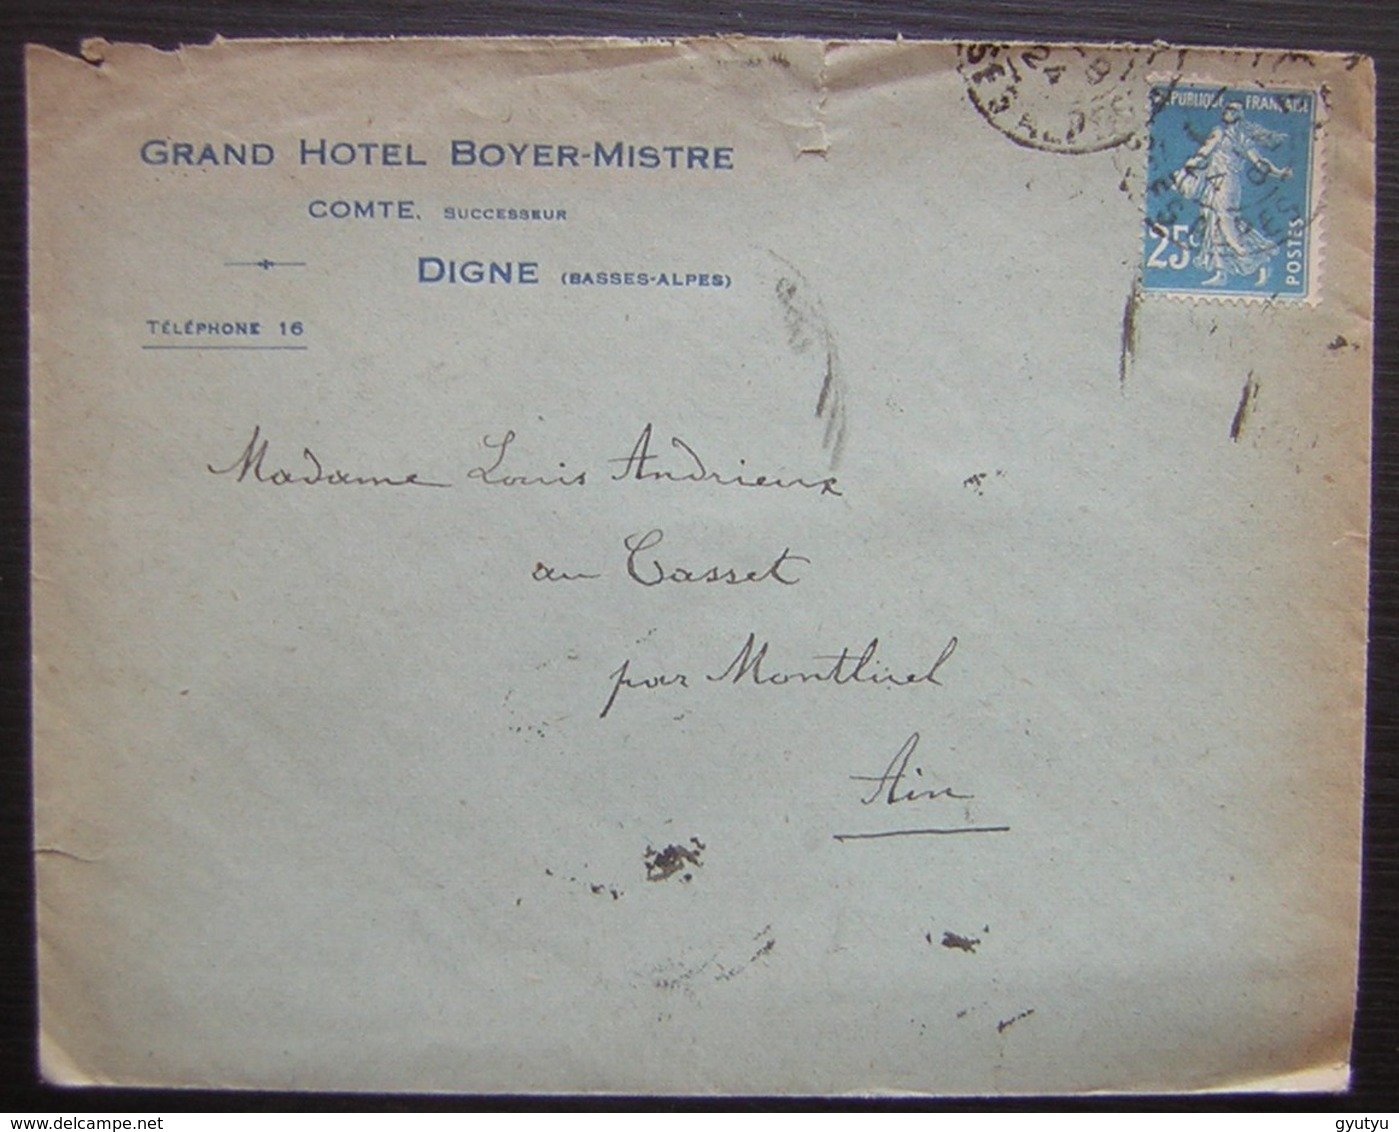 GRAND HOTEL BOYER-MISTRE
COMTE, SUCCESSEUR
DIGNE (BASSES-ALPES)
TÉLÉPHONE 16
RÉPUBLIQUE FRANÇAISE
25c
POSTES
24
SES ALPES
Madame Louis Andrieux
au Casset
par Montluel
Ain
delcampe.net
gyutyu